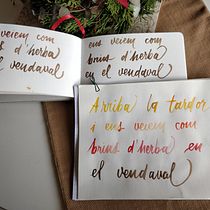 veiem com
brins d'herba
en el vendaval
ens veiem com
brins d'herba
en el vendaval
Arriba la tardor
i ens veiem com
brins d'herba en
el vendaval